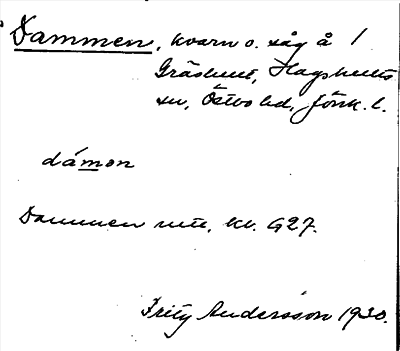 Dammen, kvarn o. såg å /
Gräshult, Hagshults
sn, Östbo hd, Jönk. l.
dámon
Dammen mtl, kv. G27.
Fritz Andersson 1930.